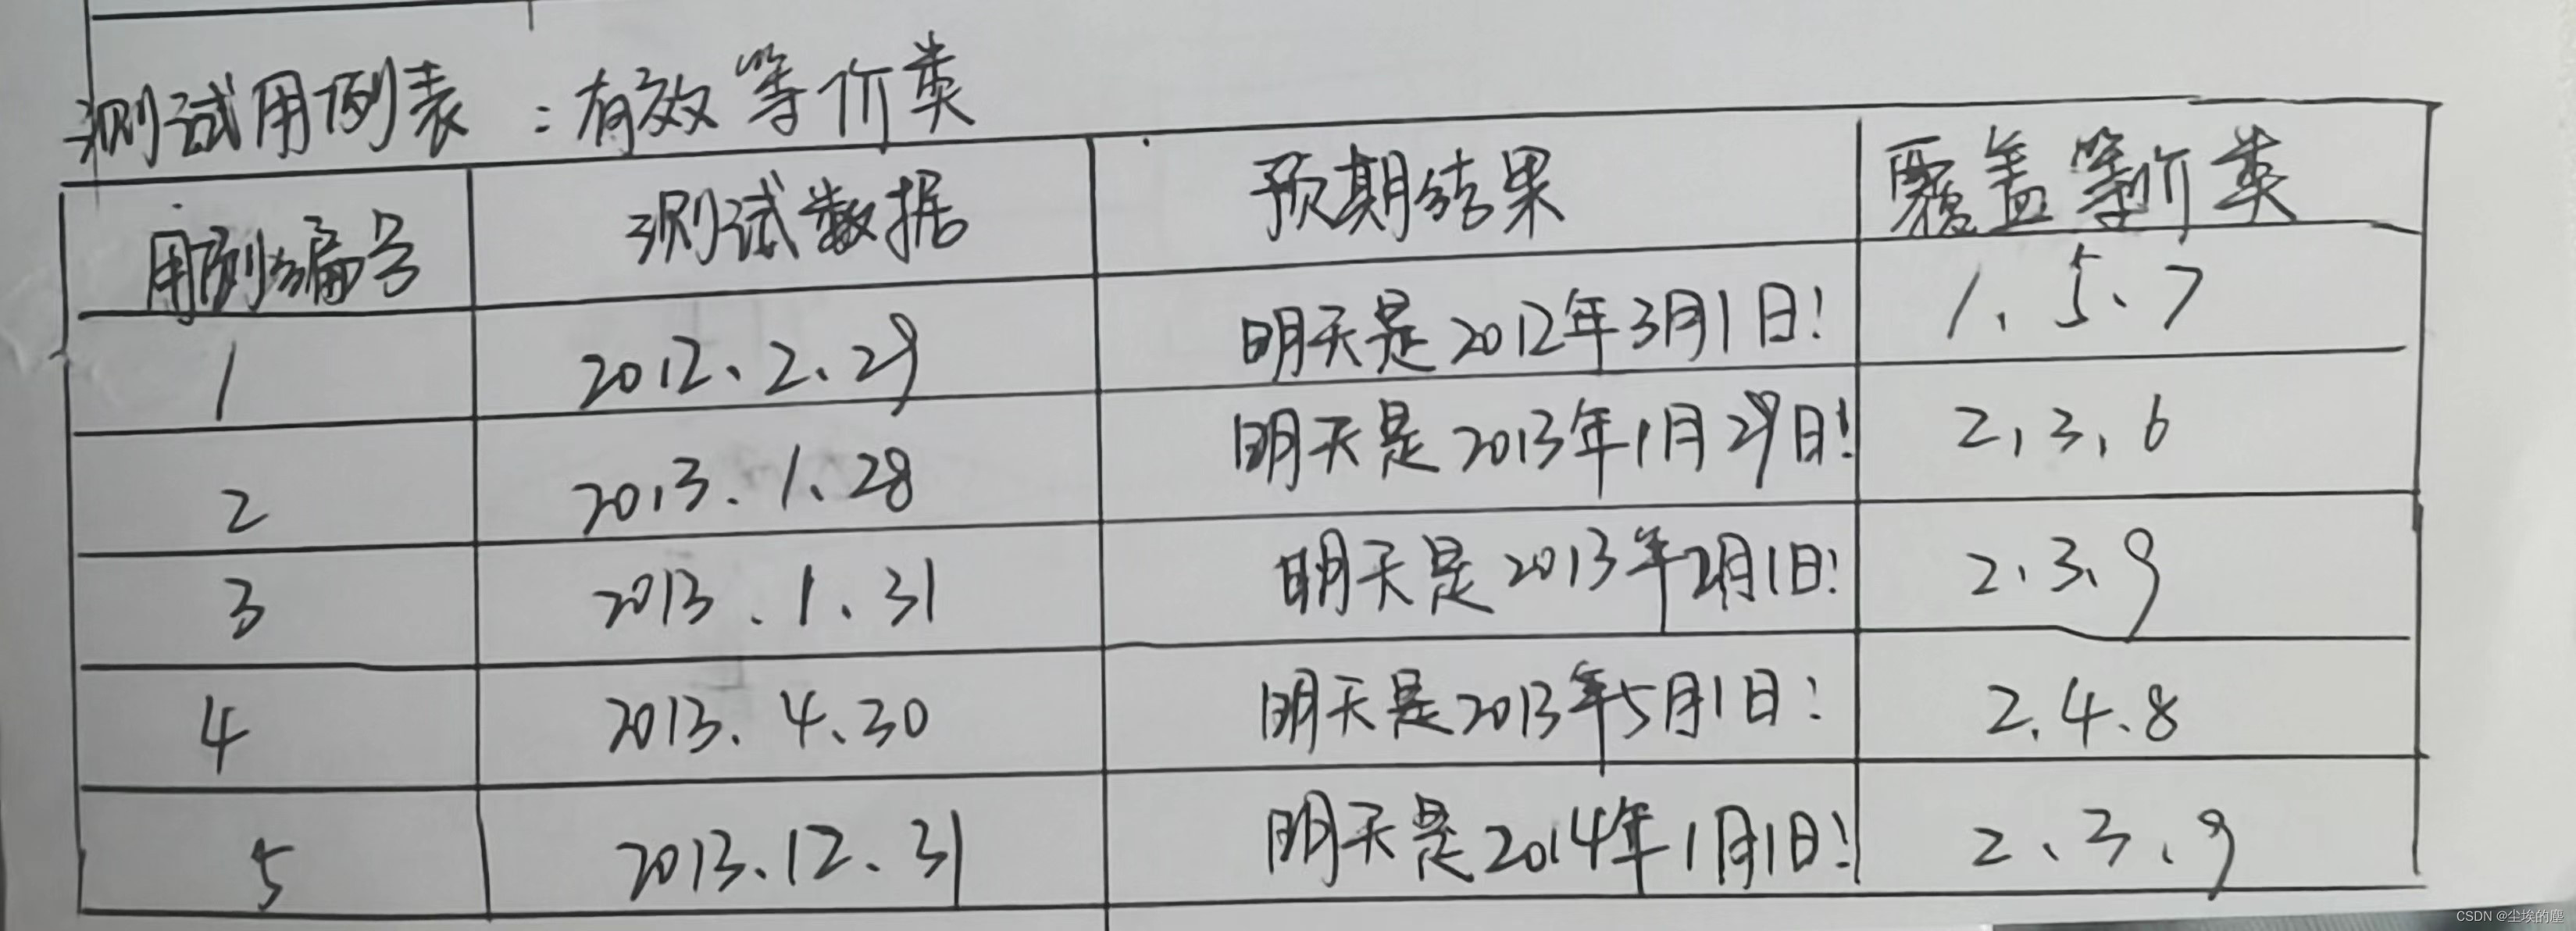 测试用例表：有效等价类
用例编号 测试数据 预期结果 覆盖等价类
1 2012、2、29 明天是2012年3月1日! 1、5、7
2 2013、1、28 明天是2013年1月29日! 2,3,6
3 2013、1、31 明天是2013年2月1日! 2、3、9
4 2013、4、30 明天是2013年5月1日! 2、4、8
5 2013、12、31 明天是2014年1月1日! 2、3、9
CSDN @尘埃的塵